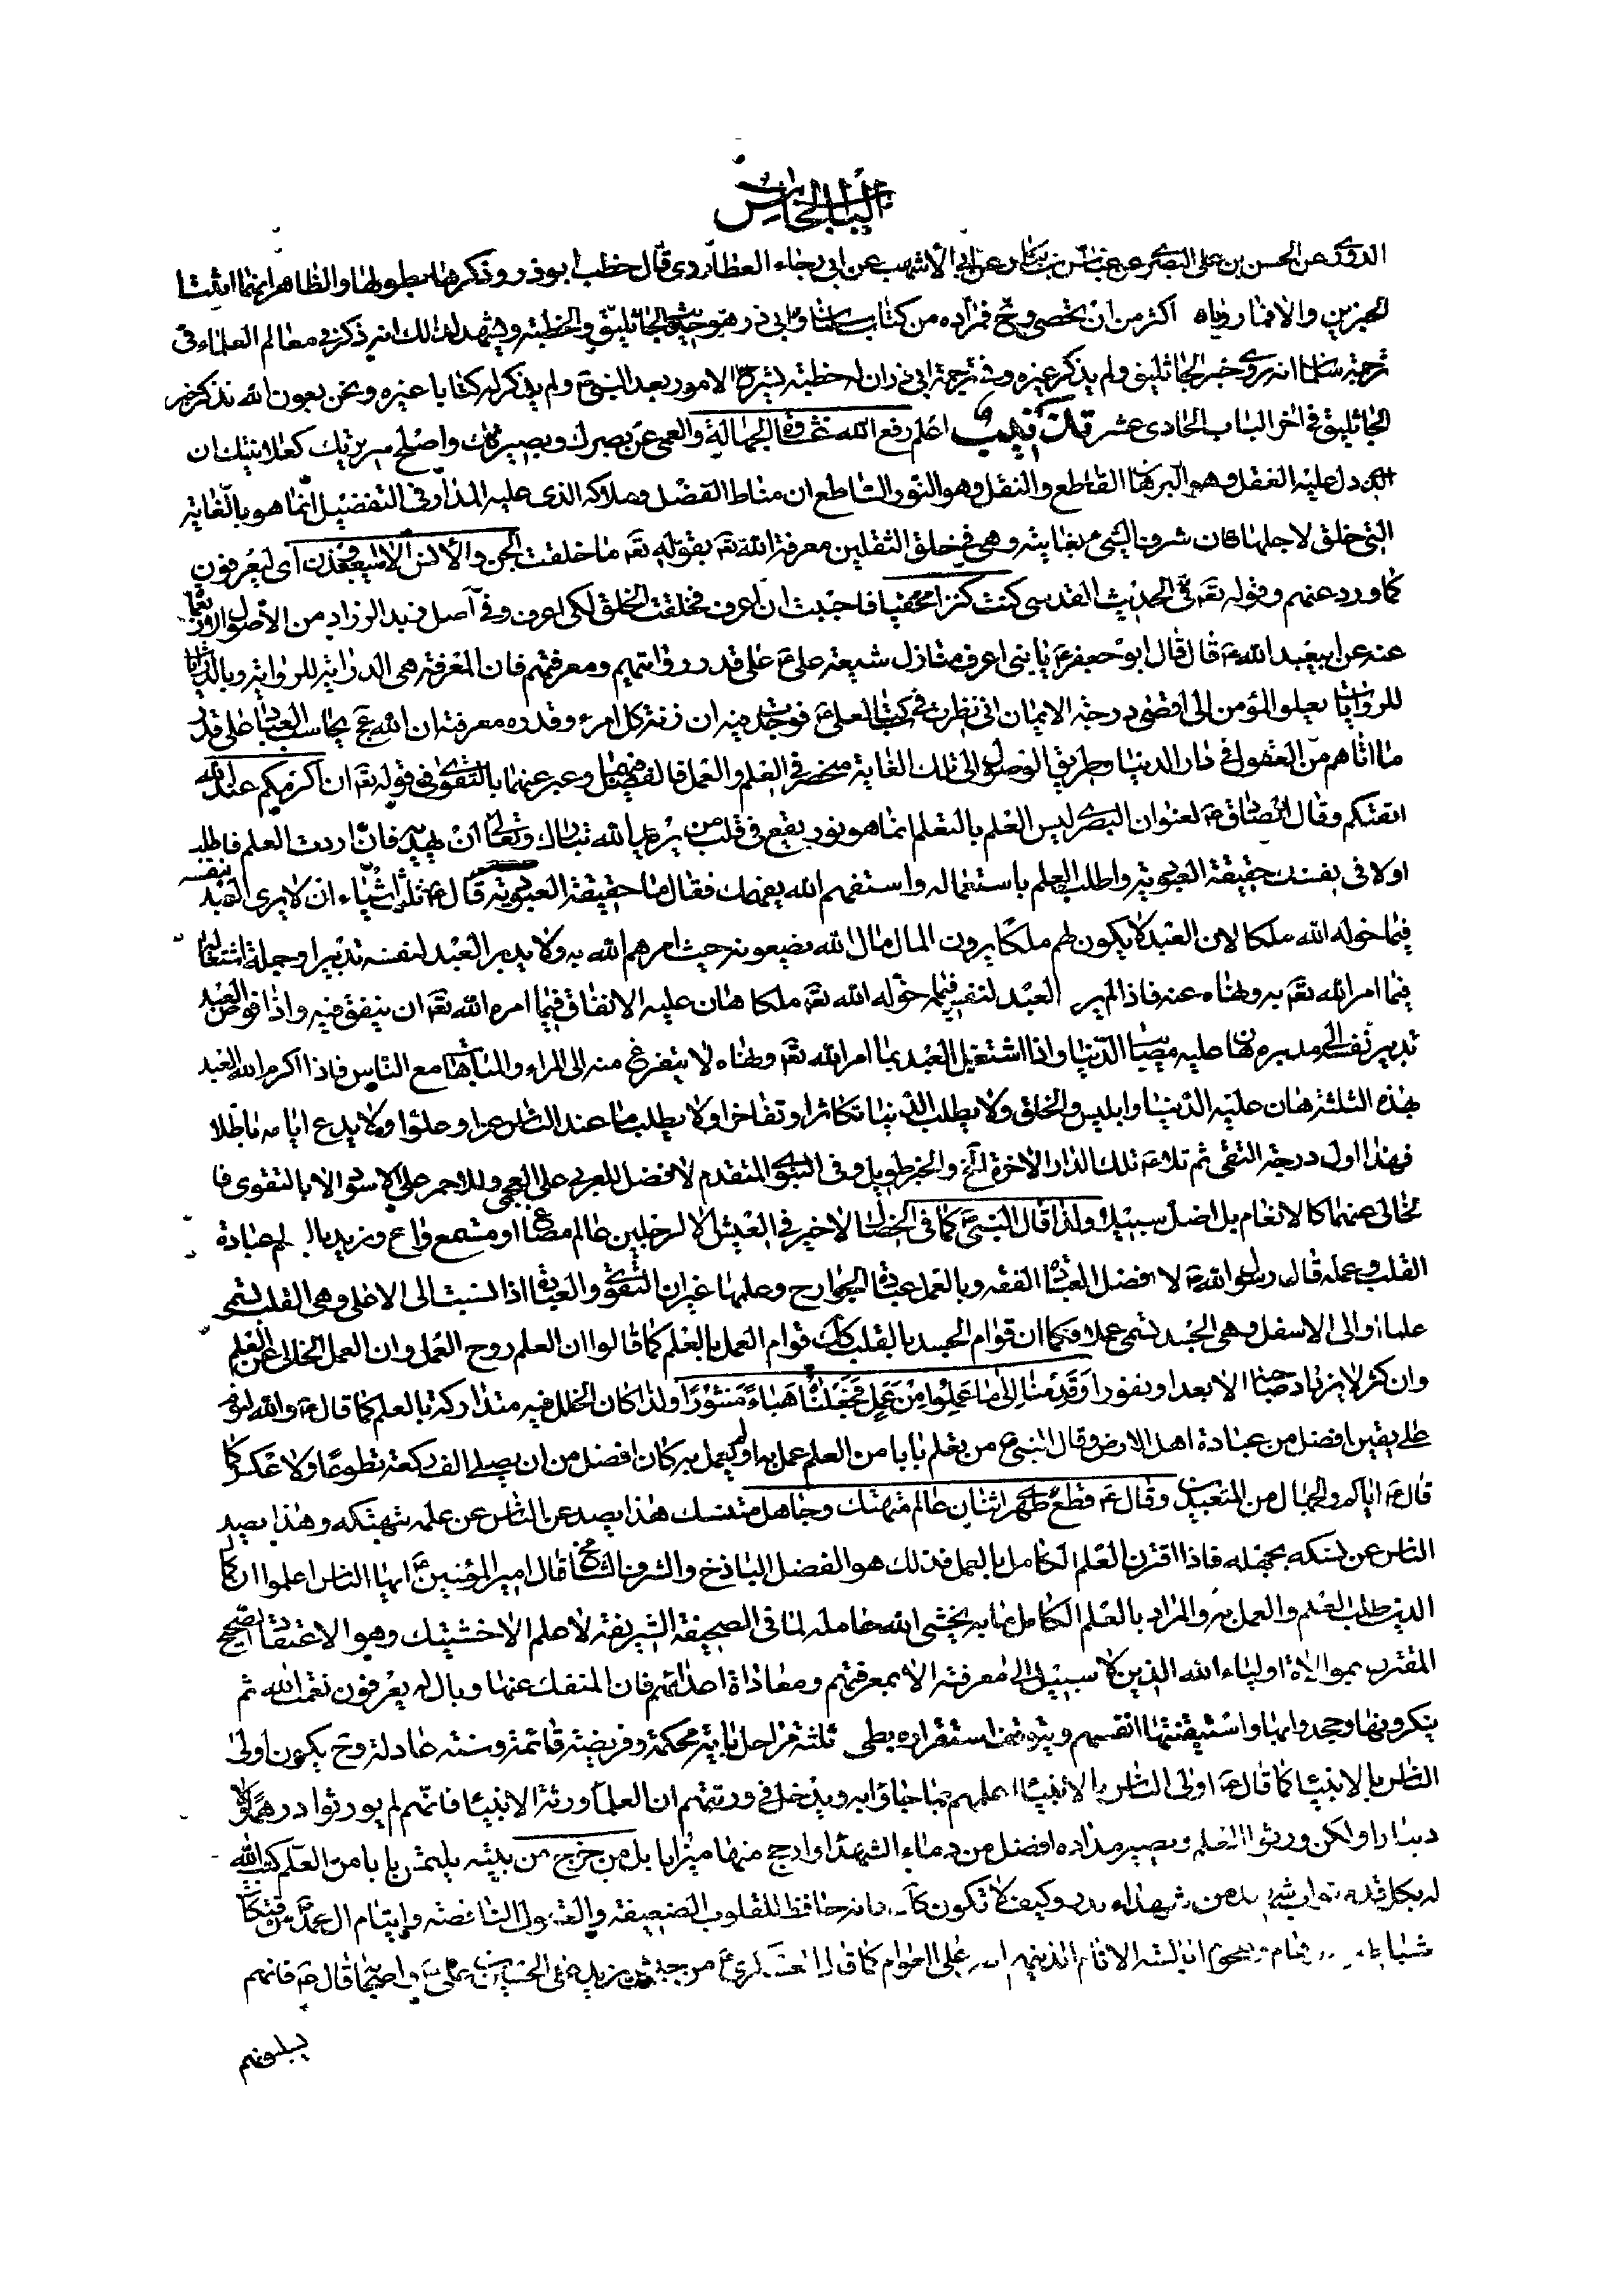 الباب الخامس
الدوري عن الحسن بن علي البصري عن عباس بن بكار عن ابي الأشهب عن ابي رجاء العطاردي قال خطب ابو ذر وذكرها بطولها والظاهر انهما اثبتا
الخبرين والا فما روياه اكثر من ان يحصى وح فمراده من كتاب سلمان وابي ذر هو حديث الجاثليق والخطبة ويشهد لذلك انه ذكر في معالم العلماء في
ترجمة سلمان انه روى خبر الجاثليق ولم يذكر غيره وفي ترجمة ابي ذر ان له خطبة يشرح الامور بعد النبي ص ولم يذكر له كتابا غيره ونحن بعون الله نذكر خبر
الجاثليق في اخر الباب الحادي عشر اعلم رفع الله غشاوة الجهالة والعمى عن بصرك وبصيرتك واصلح سريرتك كعلانيتك ان
الذي دل عليه العقل وهو البرهان القاطع والنقل وهو النور الساطع ان مناط الفضل وملاكه الذي عليه المدار في التفضيل انما هو بالغاية
التي خلق لاجلها فان شرف الشيء بغايته وهي في خلق الثقلين معرفة الله تعه بقوله تعه ما خلقت الجن والأنس الا ليعبدون اي ليعرفون
كما ورد عنهم وقوله تعه في الحديث القدسي كنت كنزا مخفيا فاحببت ان اعرف فخلقت الخلق لكي اعرف وفي اصل زيد الزراد من الأصول الاربعمائة
عنه عن ابيعبد الله ع قال قال ابو جعفر ع يا بني اعرف منازل شيعة علي ع على قدر روايتهم ومعرفتهم فان المعرفة هي الدراية للرواية وبالدرايات
للروايات يعلو المؤمن الى اقصى درجة الايمان اني نظرت في كتاب لعلي ع فوجدت فيه ان زنة كل امرء وقدره معرفته ان الله عج يحاسب العباد على قدر
ما اتاهم من العقول في دار الدنيا وطريق الوصول الى تلك الغاية منحصر في العلم والعمل فالفضل وعبر عنهما بالتقوى في قوله تعه ان اكرمكم عند الله
اتقيكم وقال الصادق ع لعنوان البصري ليس العلم بالتعلم انما هو نور يقع في قلب من يريد الله تبارك وتعالى ان يهديه فان اردت العلم فاطلب
اولا في نفسك حقيقة العبودية واطلب العلم باستعماله واستفهم الله يفهمك فقال ما حقيقة العبودية قال ع ثلثة اشياء ان لا يرى العبد لنفسه
فيما خوله الله ملكا لان العبيد لا يكون لهم ملك يرون المال مال الله يضعونه حيث امرهم الله به ولا يدبر العبد لنفسه تدبيرا وجملة اشتغاله
فيما امر الله تعه به ونهاه عنه فاذا لم ير العبد لنفسه فيما خوله الله تعه ملكا هان عليه الانفاق فيما امره الله تعه ان ينفق فيه واذا فوض العبد
تدبير نفسه الى مدبره هان عليه مصائب الدنيا واذا اشتغل العبد بما امر الله تعه ونهاه لا يتفرغ منه الى المراء والمباهاة مع الناس فاذا اكرم الله العبد
بهذه الثلثة هان عليه الدنيا وابليس والخلق ولا يطلب الدنيا تكاثرا وتفاخرا ولا يطلب ما عند الناس عزا وعلوا ولا يدع ايامه باطلا
فهذا اول درجة التقى ثم تلا ع تلك الدار الاخرة الخ والخبر طويل وفي النبوي المتقدم لا فضل للعربي على العجمي ولا للاحمر على الاسود الا بالتقوى فا
لخالى عنهما كالانعام بل اضل سبيلا ولذا قال النبي ص كما في الخصال لا خير في العيش الا لرجلين عالم مطاع او مستمع واع ونريد بالعلم عبادة
القلب وعمله قال رسول الله ص افضل العبادة الفقه وبالعمل عبادة الجوارح وعملها غير ان التقوى والعبادة اذا نسبت الى الاعلى وهي القلب تسمى
علما والى الاسفل وهي الجسد تسمى عملا وكما ان قوام الجسد بالقلب كذلك قوام العمل بالعلم كما قالوا ان العلم روح العمل وان العمل الخالى عن العلم
وان كثر لا يزداد صاحبه الا بعدا ونفورا وَقَدِمْنا اِلى ما عَمِلُوا مِنْ عَمَلٍ فَجَعَلْناهُ هَباءً مَنْثُوراً ولذا كان الخلل فيه متداركة بالعلم كما قال ع والله لنوم
على يقين افضل من عبادة اهل الارض وقال النبي ص من تعلم بابا من العلم عمل به او لم يعمل به كان افضل من ان يصلي الف ركعة تطوعا ولا عكس كما
قال ع اياكم والجهال من المتعبدين وقال ع قطع ظهري اثنان عالم متهتك وجاهل متنسك هذا يصد عن الناس عن علمه بتهتكه وهذا يصد
الناس عن نسكه بجهله فاذا اقترن العلم الكامل بالعمل فذلك هو الفضل الباذخ والشرف الشامخ قال امير المؤمنين ع ايها الناس اعلموا ان كمال
الدين طلب العلم والعمل به والمراد بالعلم الكامل ما به يخشى الله حامله لما في الصحيفة الشريفة لا علم الا خشيتك وهو الاعتقاد الصحيح
المقترن بموالاة اولياء الله الذين لا سبيل الى معرفته الا بمعرفتهم ومعاداة اعدائهم فان المنفك عنها وبال له يعرفون نعمة الله ثم
ينكرونها وجحدوا بها واستيقنتها انفسهم ويتوقف استقراره بطي ثلثة مراحل باية محكمة وفريضة قائمة وسنة عادلة وح يكون اولى
الناس بالانبياء كما قال ع اولى الناس بالانبياء اعلمهم بما جاؤا به ويدخل في ورثتهم ان العلماء ورثة الانبياء فانهم لم يورثوا درهما ولا
دينارا ولكن ورثوا العلم ويصير مداده افضل من دماء الشهداء وارجح منها ميزانا بل من خرج من بيته يلتمس بابا من العلم كتب الله
له بكل قدم ثواب شهيد من شهداء بدر وكيف لا تكون كذلك فانه حافظ للقلوب الضعيفة والعقول الناقصة وايتام ال محمد ص
على العوام كما قال العسكري ع قال ع فانهم
يسلبونهم